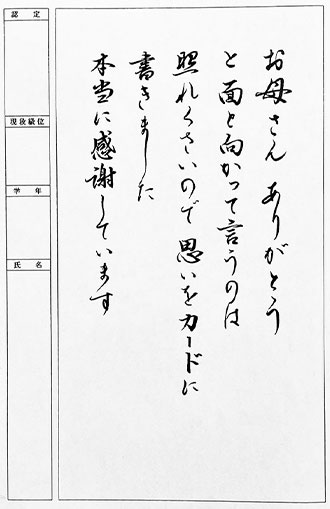 お母さん ありがとう
と面と向かって言うのは
照れくさいので 思いをカードに
書きました
本当に感謝しています
認定
現段級位
学年
氏名